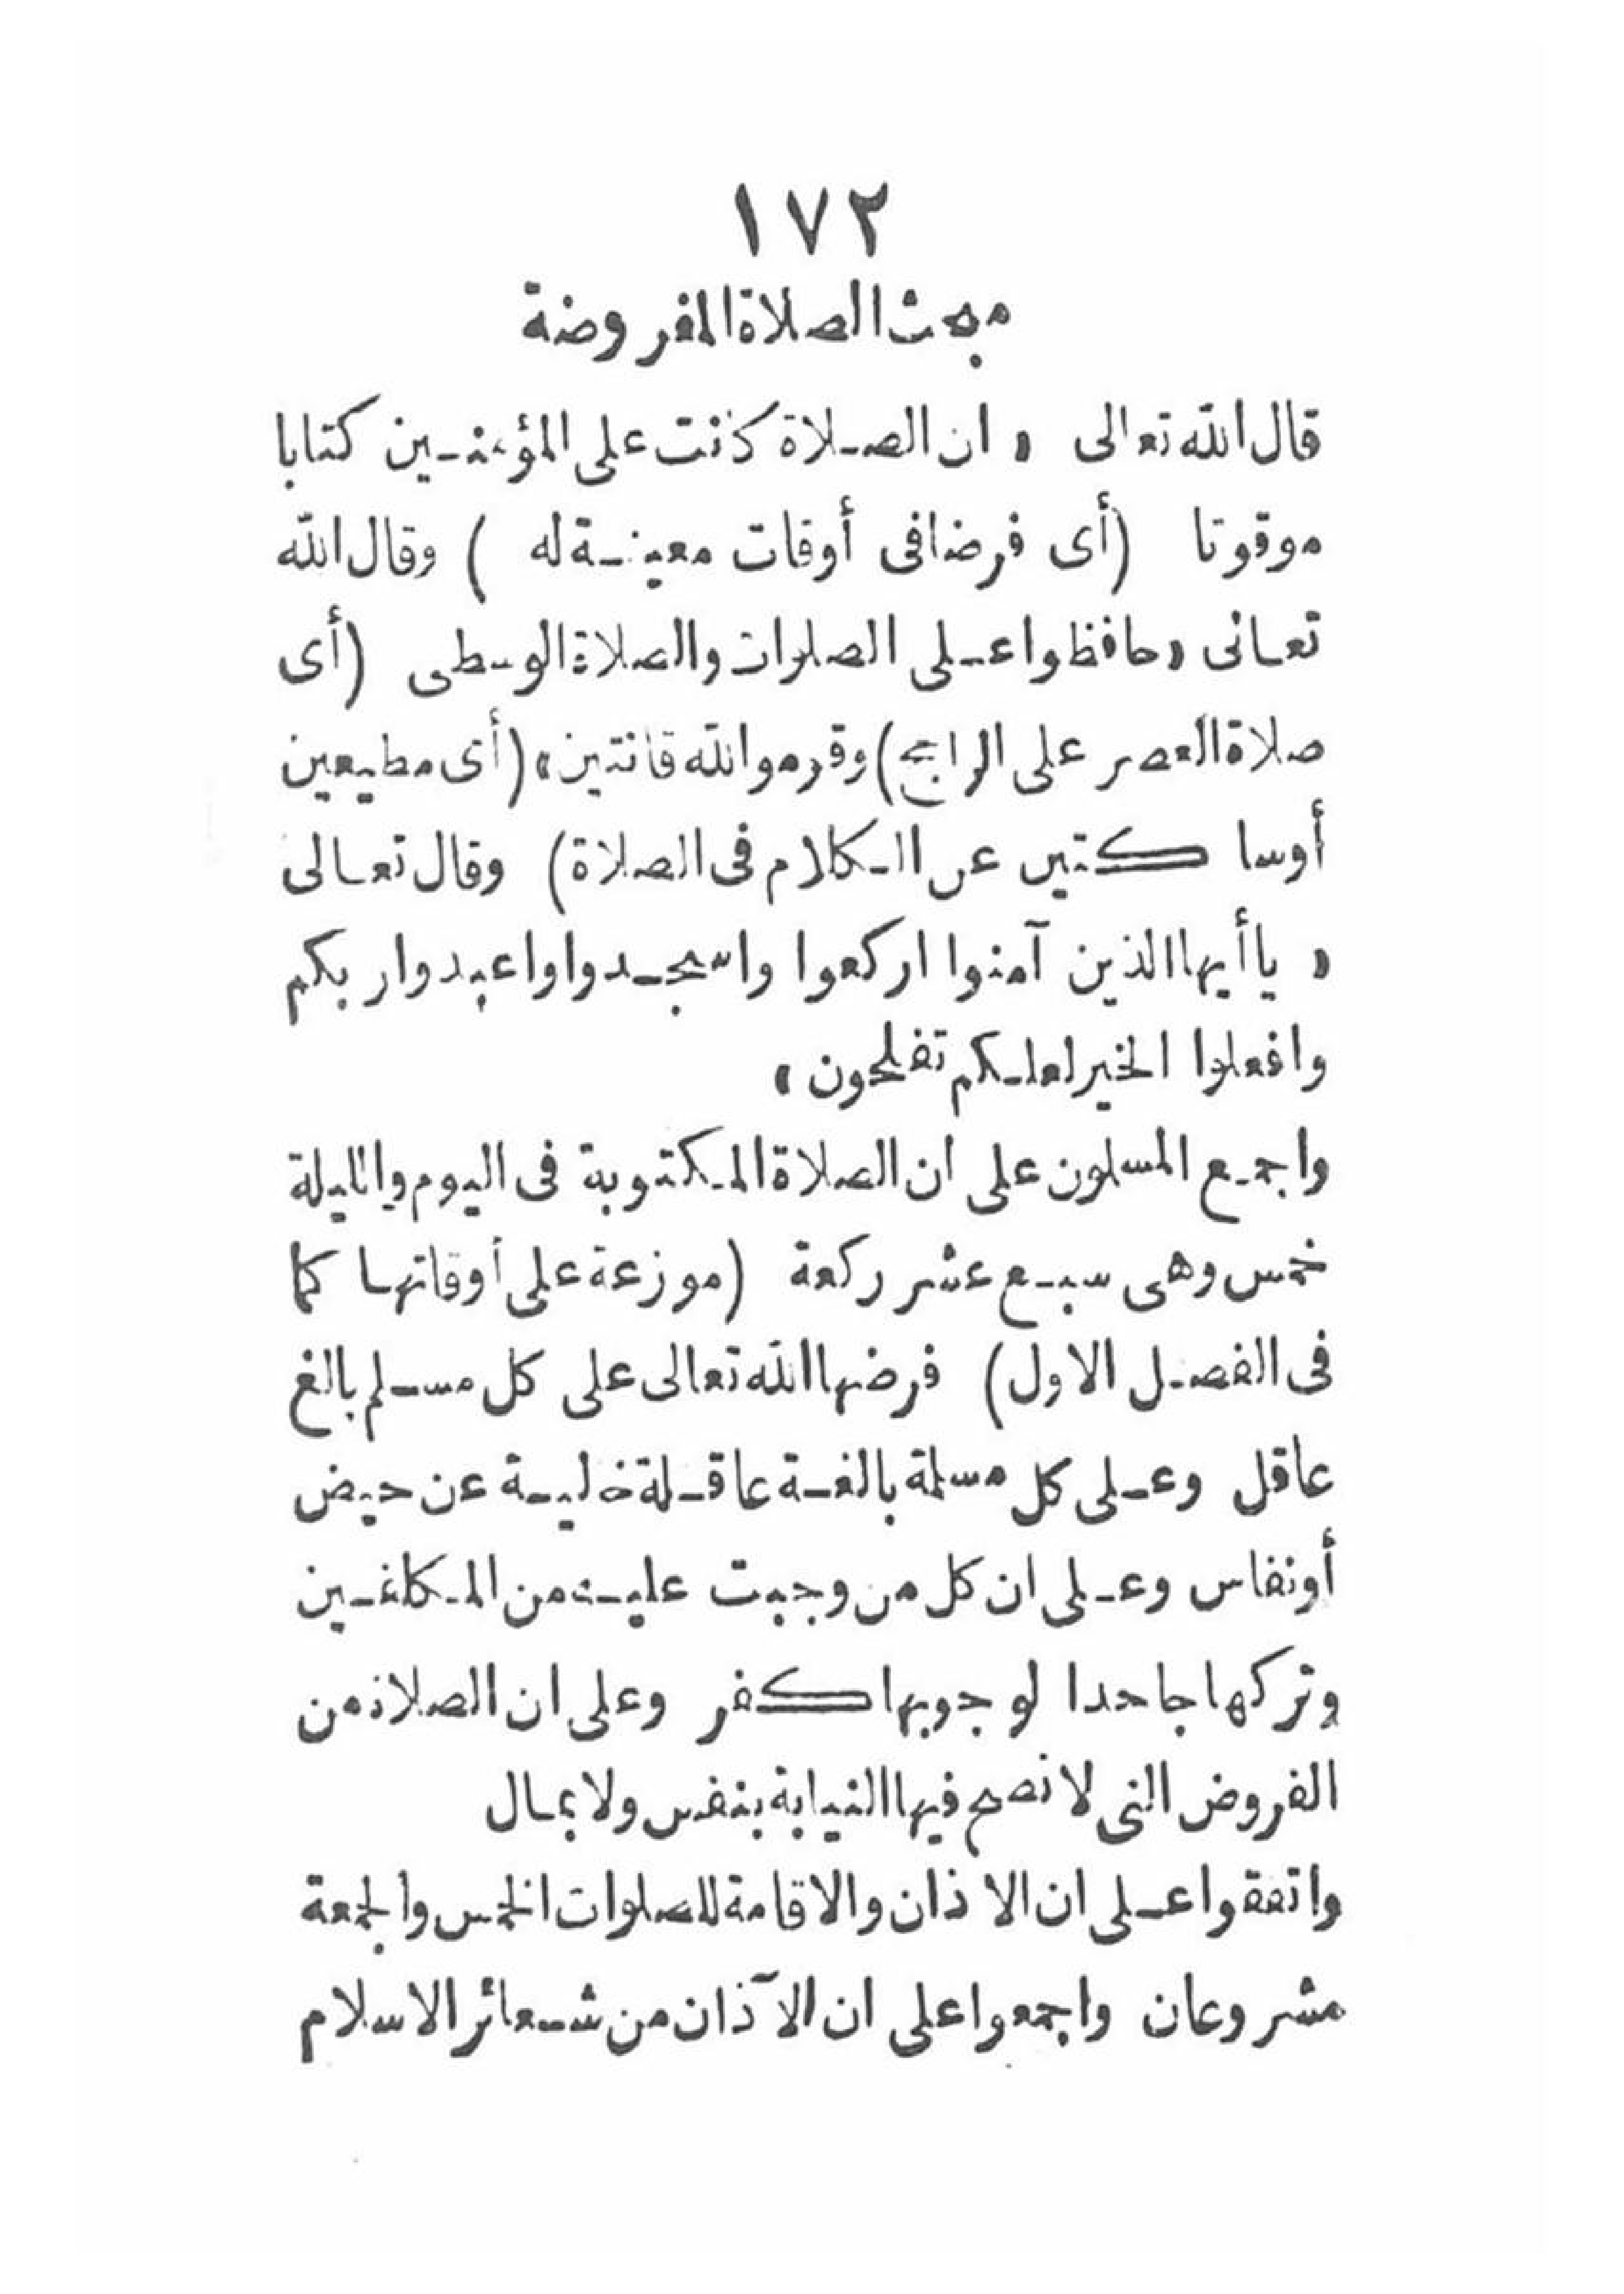 ١٧٢
مبحث الصلاة المفروضة
قال الله تعالى « ان الصلاة كانت على المؤمنين كتابا
موقوتا (أى فرضا فى أوقات معينة له ) وقال الله
تعالى « حافظوا على الصلوات والصلاة الوسطى (أى
صلاة العصر على الراجح) وقوموا لله قانتين » (أى مطيعين
أو ساكتين عن الكلام فى الصلاة) وقال تعالى
« يا أيها الذين آمنوا اركعوا واسجدوا واعبدوا ربكم
وافعلوا الخير لعلكم تفلحون »
واجمع المسلمون على ان الصلاة المكتوبة فى اليوم والليلة
خمس وهى سبع عشر ركعة (موزعة على أوقاتها كما
فى الفصل الاول) فرضها الله تعالى على كل مسلم بالغ
عاقل وعلى كل مسلمة بالغة عاقلة خلية عن حيض
أو نفاس وعلى ان كل من وجبت عليه من المكلفين
وتركها جاحدا لوجوبها كفر وعلى ان الصلاة من
الفروض التى لا تصح فيها النيابة بنفس ولا بمال
واتفقوا على ان الاذان والاقامة للصلوات الخمس والجمعة
مشروعان واجمعوا على ان الآذان من شعائر الاسلام